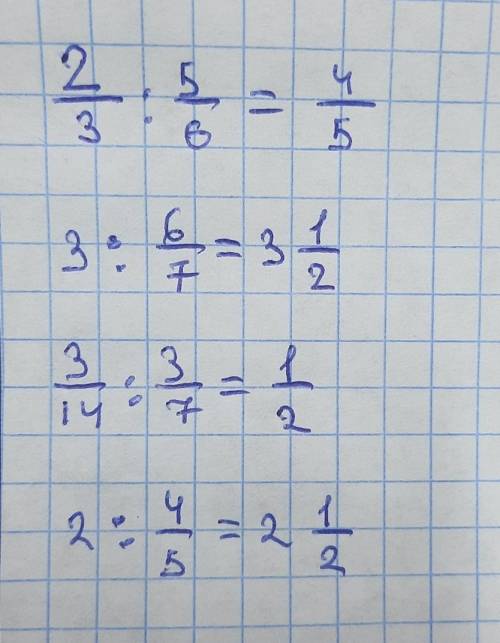 2/3 : 5/6 = 4/5
3 : 6/7 = 3 1/2
3/14 : 3/7 = 1/2
2 : 4/5 = 2 1/2